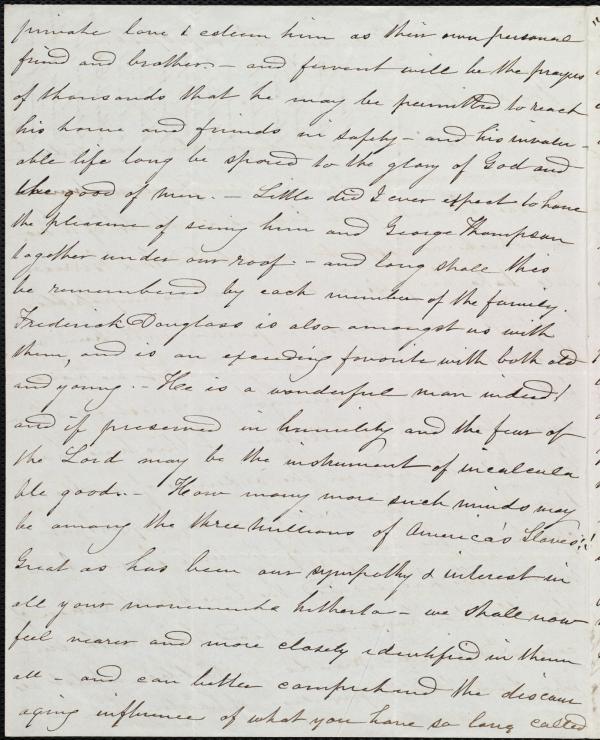 private love & esteem him as their own personal
friend and brother. - and fervent will be the prayers
of thousands that he may be permitted to reach
his home and friends in safety - and his invalu-
able life long be spared to the glory of God and
the good of men. - Little did I ever expect to have
the pleasure of seeing him and George Thompson
together under our roof. - and long shall this
be remembered by each member of the family.
Frederick Douglass is also amongst us with
them, and is an exceeding favorite with both old
and young. - He is a wonderful man indeed!
and if preserved in humility and the fear of
the Lord may be the instrument of incalcula
ble good. - How many more such minds may
be among the three Millions of America's Slaves!!
Great as has been our sympathy & interest in
all your movements hitherto - we shall now
feel nearer and more closely identified in them
all - and can better comprehend the discour
aging influence of what you have so long called